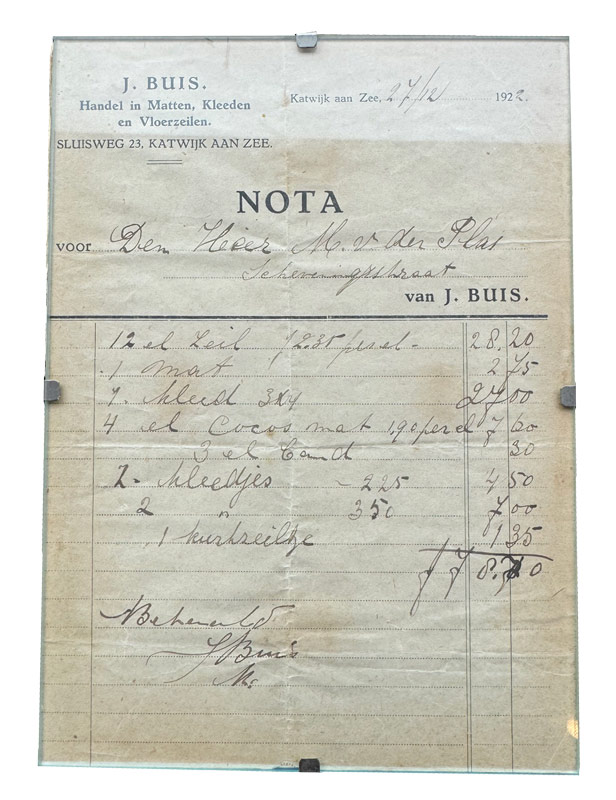 J. BUIS.
Handel in Matten, Kleeden
en Vloerzeilen.
SLUISWEG 23, KATWIJK AAN ZEE.
Katwijk aan Zee, 27/12 1922.
NOTA
voor Den Heer M. v. der Plas
Scheveningschstraat
van J. BUIS.
12 el Zeil f 2.35 per el - 28.20
1 mat 2 75
1. Kleed 3x4 27 00
4 el Cocos mat 1,90 per el 7 60
3 el band 30
2 - Kleedjes - 225 4 50
2 " 350 7 00
1 kurkzeiltje 1 35
f 78.70
Betaald
J Buis